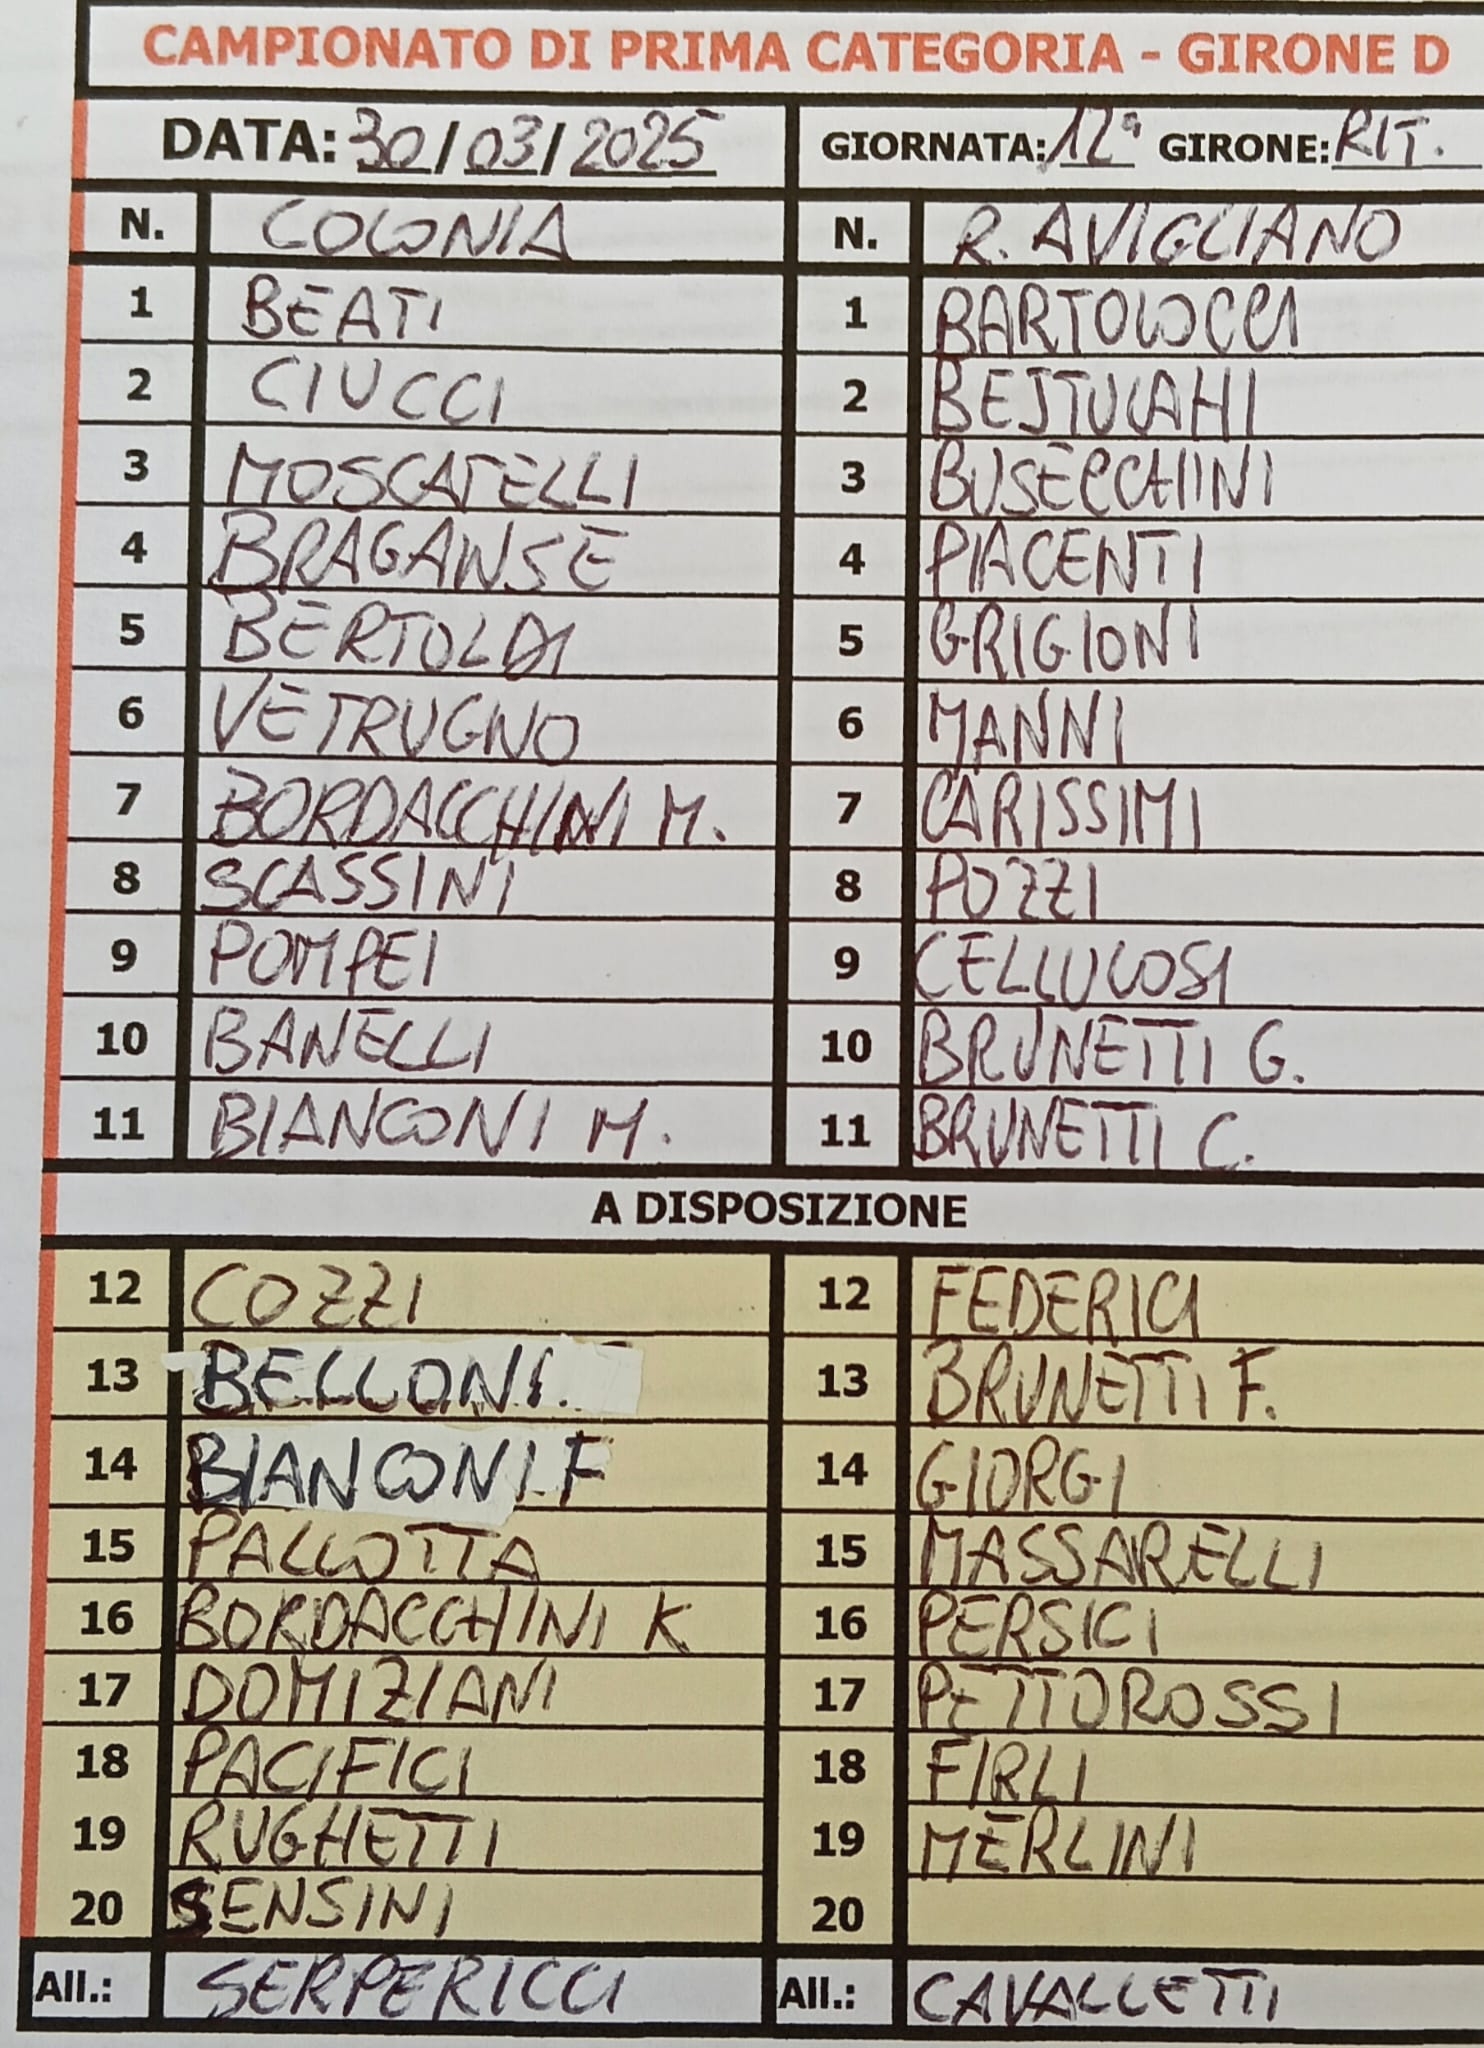 CAMPIONATO DI PRIMA CATEGORIA - GIRONE D
DATA: 30/03/2025 GIORNATA: 12ª GIRONE: RIT.
N. COLONIA N. R. AVIGLIANO
1 BEATI 1 BARTOLOCCI
2 CIUCCI 2 BEJTULAHI
3 MOSCATELLI 3 BUSECCHINI
4 BRAGANSE 4 PIACENTI
5 BERTOLDI 5 GRIGIONI
6 VETRUGNO 6 MANNI
7 BORDACCHINI M. 7 CARISSIMI
8 SCASSINI 8 POZZI
9 POMPEI 9 CELLULOSI
10 BANELLI 10 BRUNETTI G.
11 BIANCONI M. 11 BRUNETTI C.
A DISPOSIZIONE
12 COZZI 12 FEDERICI
13 BELLONI 13 BRUNETTI F.
14 BIANCONI F 14 GIORGI
15 PALLOTTA 15 MASSARELLI
16 BORDACCHINI K 16 PERSICI
17 DOMIZIANI 17 PETTOROSSI
18 PACIFICI 18 FIRLI
19 RUGHETTI 19 MERLINI
20 SENSINI 20
All.: SERPERICCI All.: CAVALLETTI